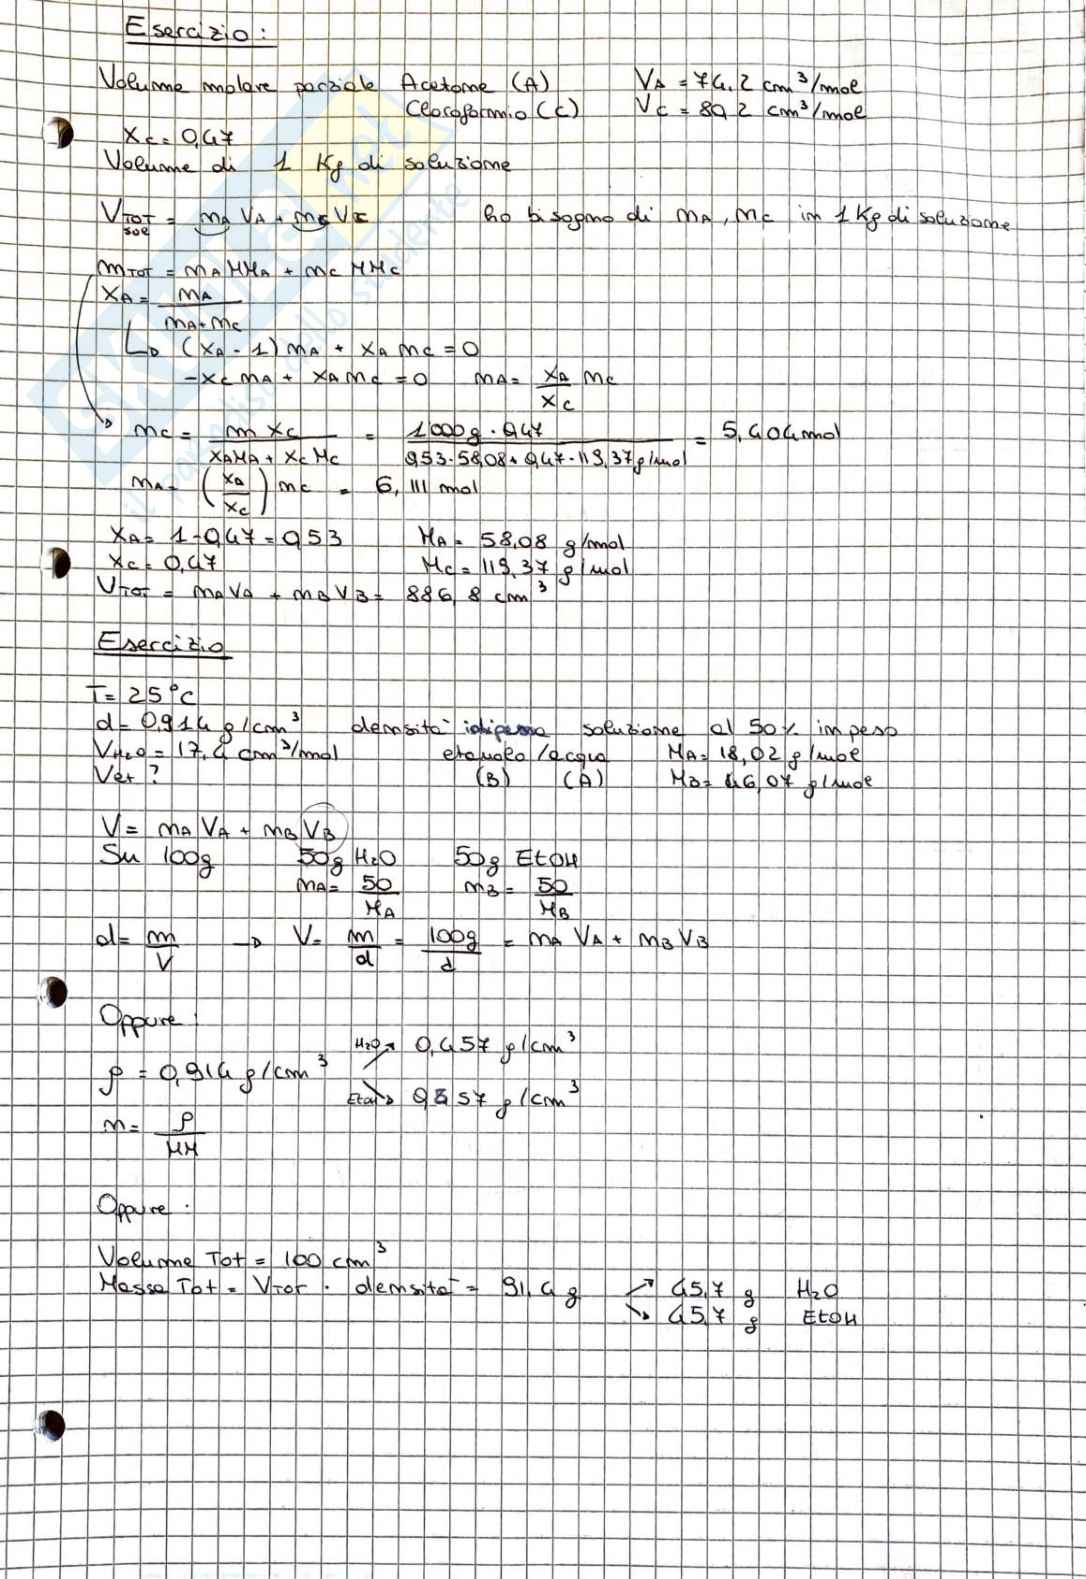 Esercizio:
Volume molare parziale Acetone (A) VA = 74,2 cm³/mol
Cloroformio (C) VC = 80,2 cm³/mol
XC = 0,47
Volume di 1 Kg di soluzione
VTOT sol = nA VA + nC VC ho bisogno di nA, nC in 1 Kg di soluzione
mTOT = nA MMA + nC MMC
XA = nA / nA+nC
↳ (XA - 1) nA + XA nC = 0
-XC nA + XA nC = 0 nA = XA/XC nC
nC = m XC / XA MA + XC MC = 1000g · 0,47 / 0,53 · 58,08 + 0,47 · 113,37 g/mol = 5,404 mol
nA = (XA/XC) nC = 6,111 mol
XA = 1 - 0,47 = 0,53 MA = 58,08 g/mol
XC = 0,47 MC = 119,37 g/mol
VTOT = nA VA + nB VB = 886,8 cm³
Esercizio
T = 25°C
d = 0,914 g/cm³ densità soluzione al 50% in peso
VH2O = 17,4 cm³/mol etanolo/acqua MA = 18,02 g/mol
Vet ? (B) (A) MB = 46,07 g/mol
V = nA VA + nB VB
Su 100g 50g H2O 50g EtOH
nA = 50/MA nB = 50/MB
d = m/V → V = m/d = 100g/d = nA VA + nB VB
Oppure:
H2O → 0,457 g/cm³
ρ = 0,914 g/cm³
EtOH → 0,457 g/cm³
n = ρ/MM
Oppure:
Volume Tot = 100 cm³
Massa Tot = VTOT · densità = 91,4 g → 45,7 g H2O
↘ 45,7 g EtOH